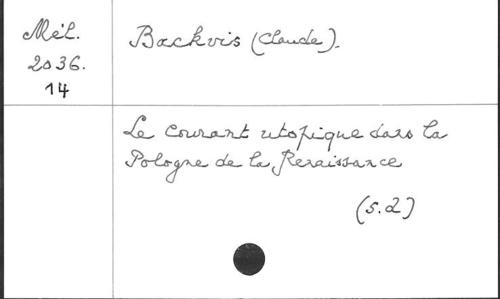 Mél.
2036.
14
Backvis (Claude).
Le courant utopique dans la
Pologne de la Renaissance
(s.d)